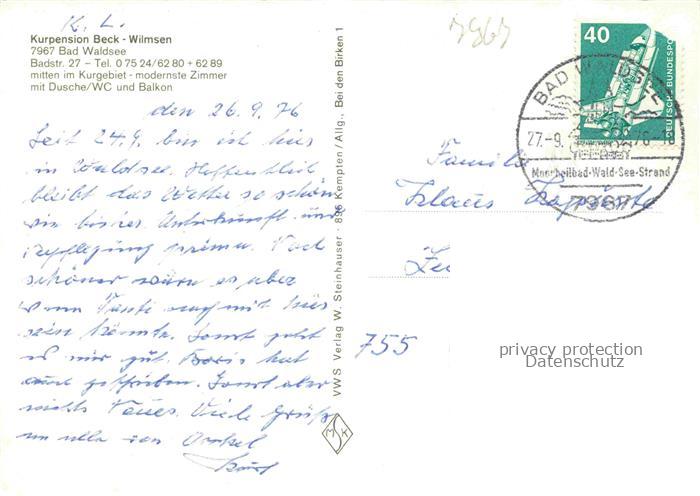 K. L.
Kurpension Beck - Wilmsen
7967 Bad Waldsee
Badstr. 27 – Tel. 0 75 24/62 80 + 62 89
mitten im Kurgebiet - modernste Zimmer
mit Dusche/WC und Balkon
den 26.9.76
Seit 24.9. bin ich hier
in Waldsee. Hoffentlich
bleibt das Wetter so schön
wie bisher. Unterkunft und
Verpflegung prima. Noch
schöner wäre es aber
wenn Tanti auch mit hier
sein könnte. Sonst geht
es mir gut. Boris hat
auch geschrieben. Sonst aber
nichts Neues. Viele Grüße
an alle von Onkel
Kurt
VWS Verlag W. Steinhauser · 896 Kempten/Allg., Bei den Birken 1
MSK
7967
40
DEUTSCHE BUNDESPOST
BAD WALDSEE
27.-9. 76-18
Moorheilbad-Wald-See-Strand
7967
Familie
Klaus
755
privacy protection
Datenschutz